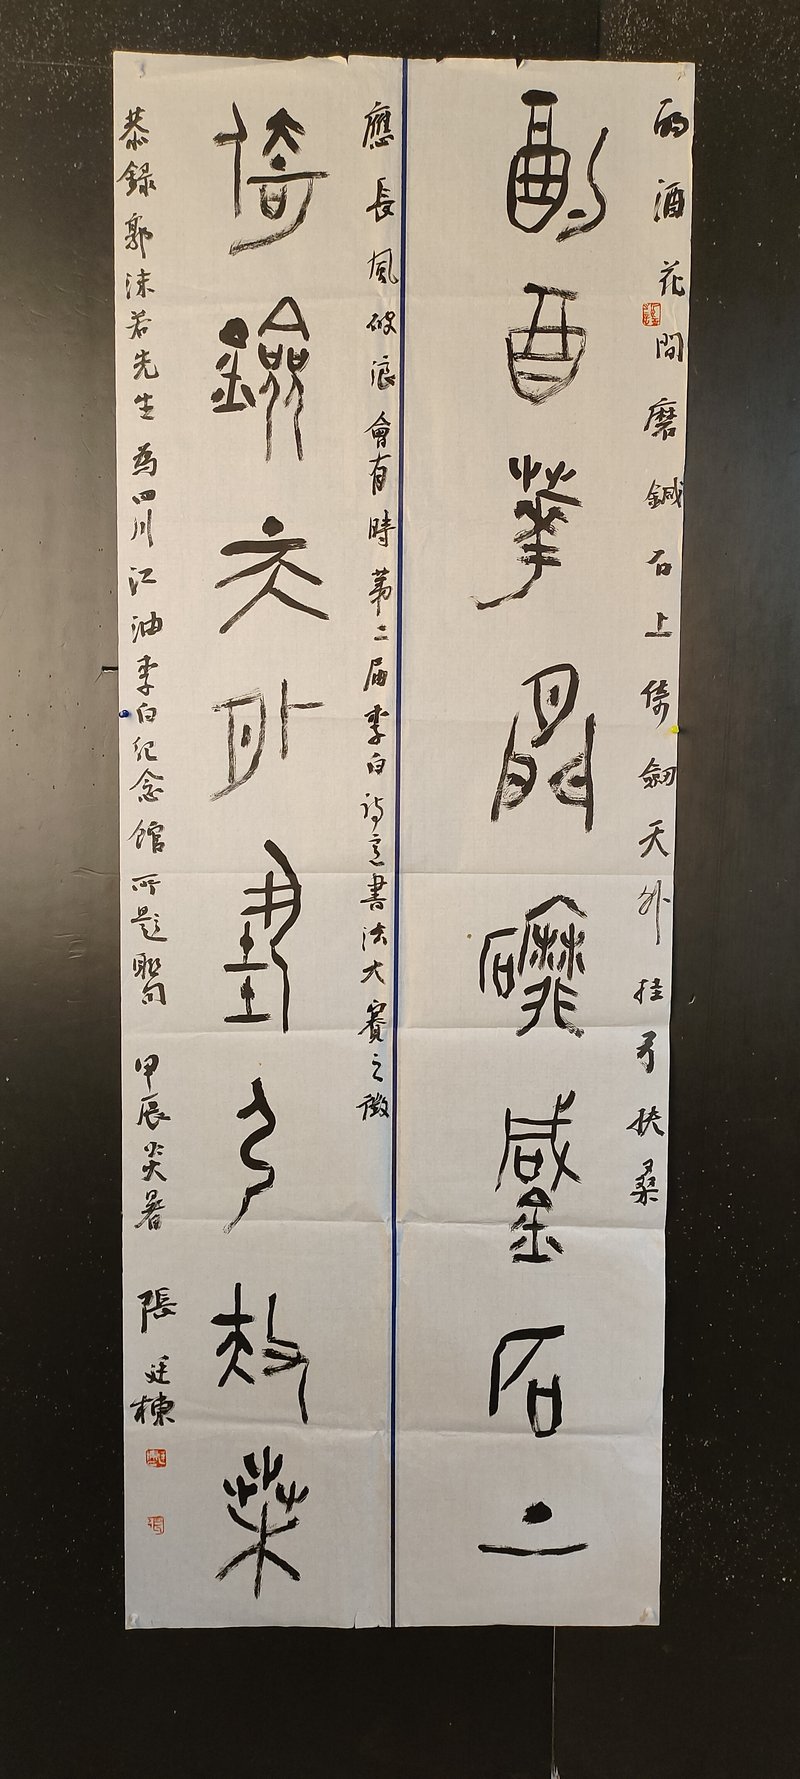 酌酒花間磨鍼石上倚劒天外挂弓扶桑
酌酒華間磨鍼石上
應長風破浪會有時第二届李白詩意書法大賽之徵
倚鐱天外挂弓扶桑
恭録郭沫若先生為四川江油李白纪念館所題聯句甲辰炎暑張廷棟